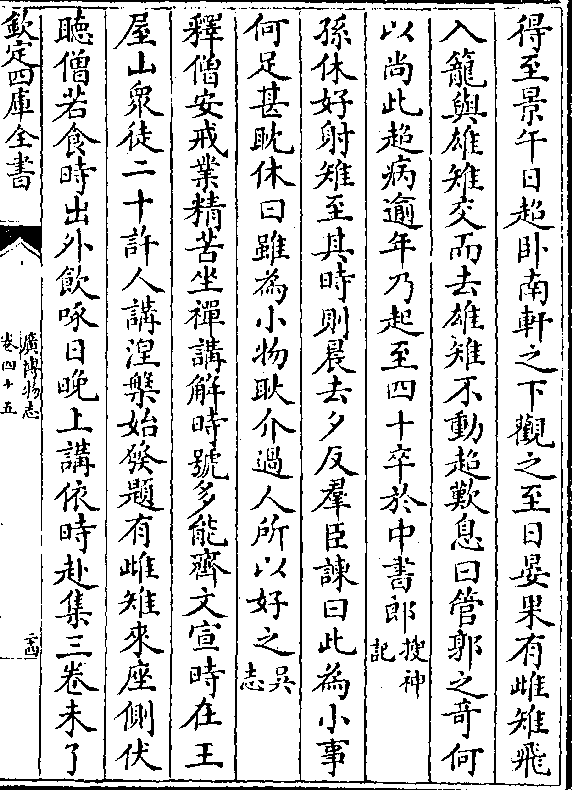 得至景午日超卧南軒之下觀之至日晏果有雌雉飛
入籠與雄雉交而去雄雉不動超歎息曰管郭之竒何
以尚此超病逾年乃起至四十卒於中書郎搜神記
孫休好射雉至其時則晨去夕反羣臣諫曰此為小事
何足甚耽休曰雖為小物耿介過人所以好之吳志
釋僧安戒業精苦坐禪講解時號多能齊文宣時在王
屋山衆徒二十許人講涅槃始發題有雌雉來座側伏
聽僧若食時出外飲啄日晚上講依時赴集三卷未了
欽定四庫全書
廣博物志
卷四十五